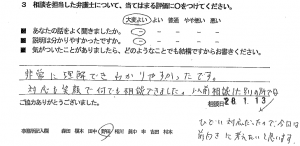 3 相談を担当した弁護士について、当てはまる評価に○をつけてください。
大変よい よい 普通 やや悪い 悪い
■ あなたの話をよく聞きましたか。
■ 説明は分かりやすかったですか。
■ 気がついたことがありましたら、どのようなことでも結構ですからお書きください。
非常に理解でき わかりやすかったです。
対応も笑顔で何でも相談できました。以前相談した別の所で
ご協力ありがとうございました。
相談日 28.1.13
ひどい対応だったので今日は
前向きに考えたいと思います。
事務所記入欄 森田 福本 田中 野花 相川 眞中 幸 吉田 村本